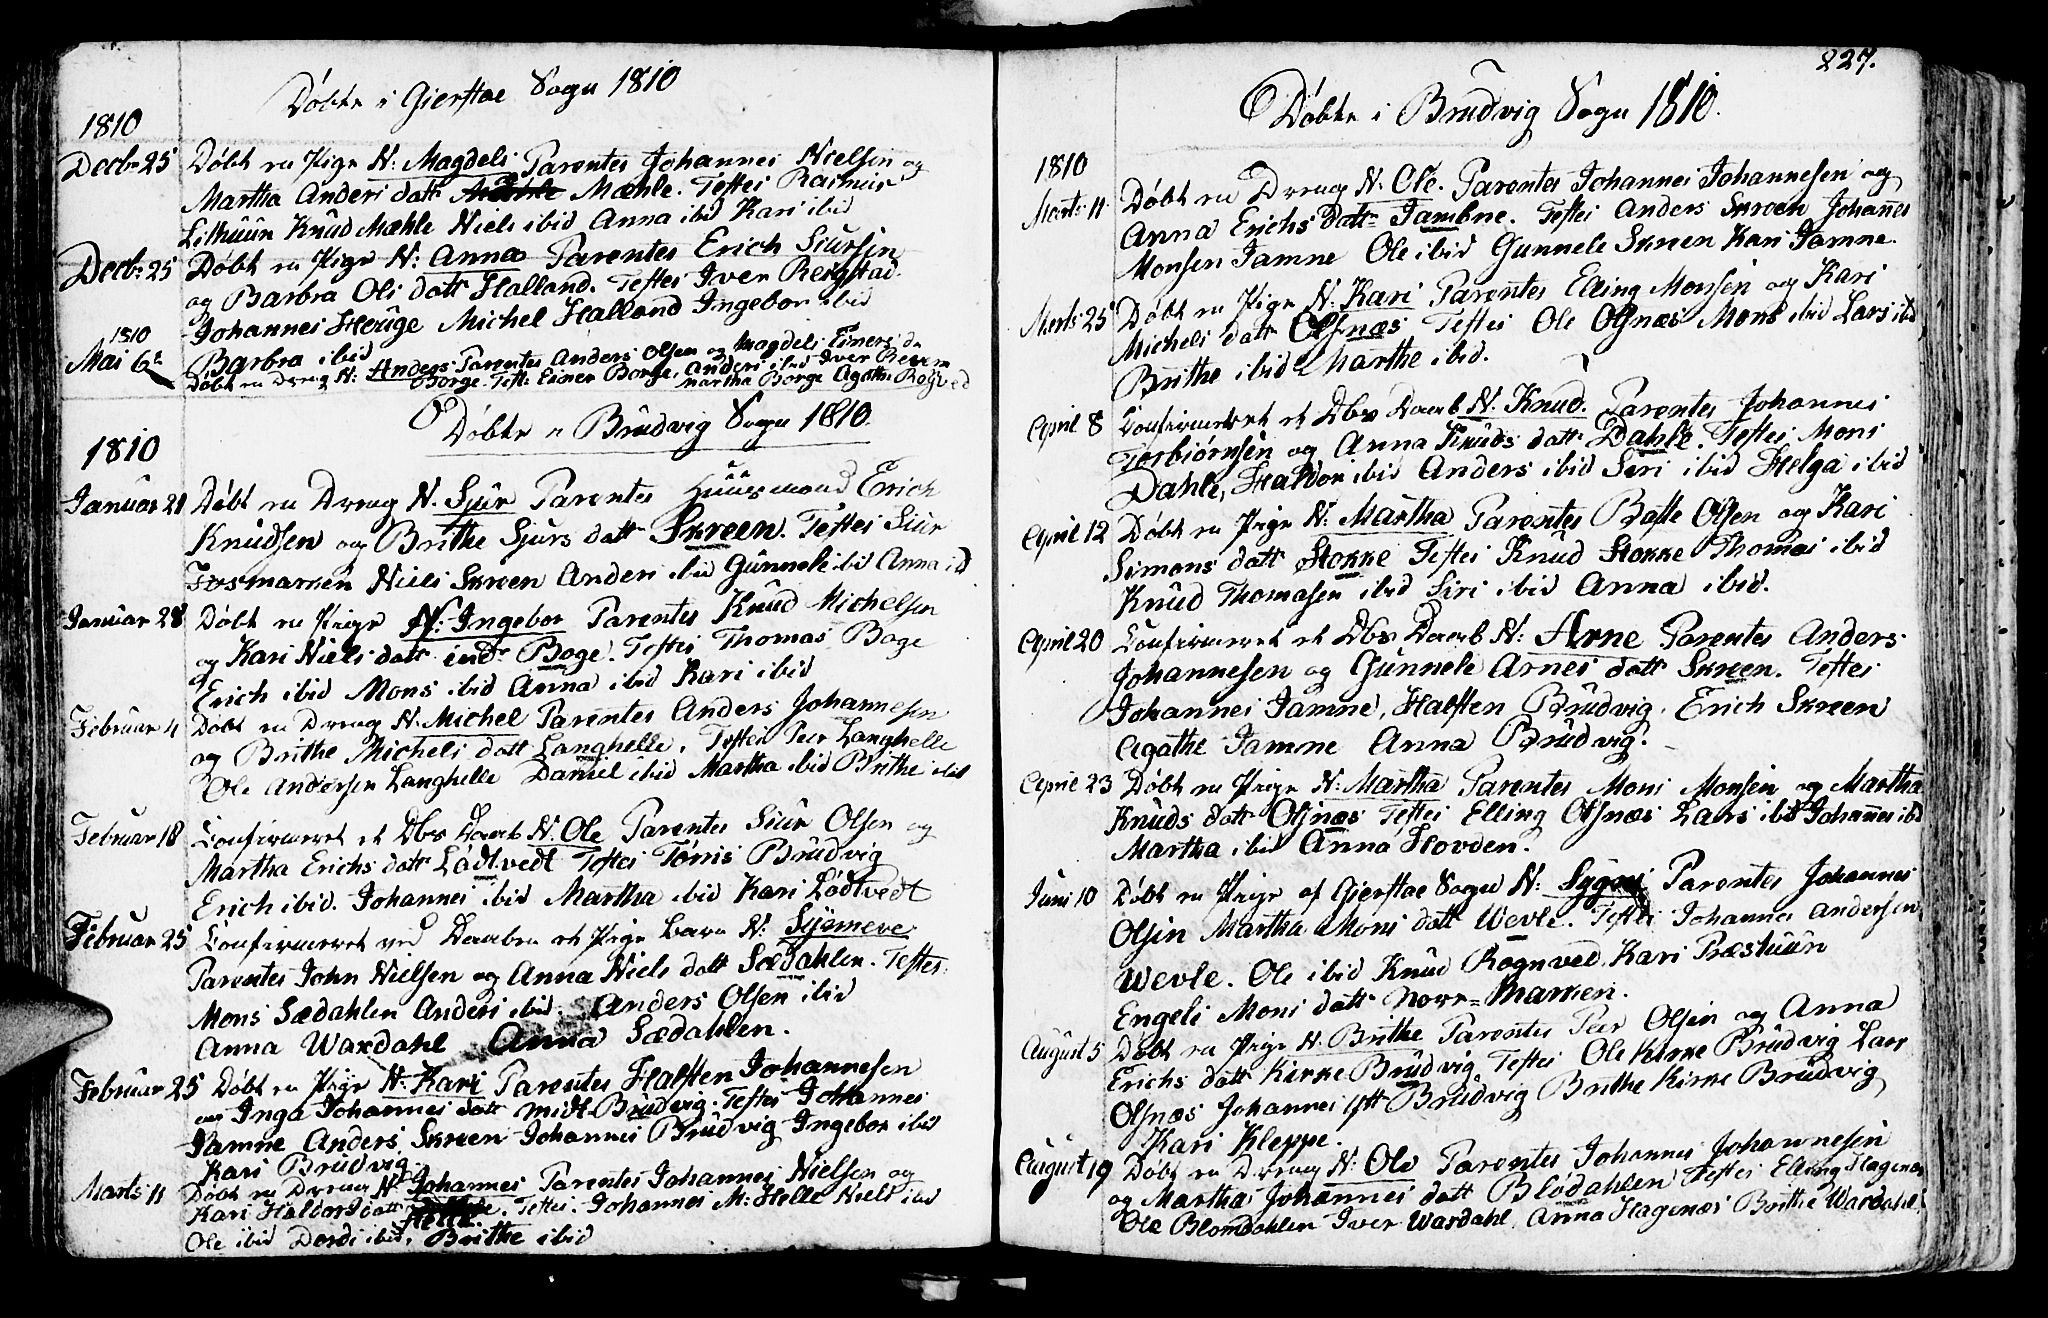 Døbte i Gierstae Sogn 1810
1810
Decbr 25 Døbt en Pige N: Magdeli Parentes Johannes Nielsen og
Martha Anders datt Mæhle. Testes Rasmus
Lilhuun Knud Mæhle Niels ibid Anna ibid Kari ibid
Decbr 25 Døbt en Pige N: Anna Parentes Erich Siursen
og Barbra Ols datt Halland. Testes Iver Reigstad
Johannes Houge Michel Halland Ingebor ibid
Barbra ibid
1810
Mai 6te Døbt en Dreng N: Anders Parentes Anders Olsen og Magdeli Einers d.
Borge Test: Einer Borge, Anders ibid Iver
Martha Borge Agathe
Døbte i Brudvig Sogn 1810.
1810
Januar 21 Døbt en Dreng N. Sjur Parentes Huusmand Erich
Knudsen og Brithe Sjurs datt Skreen. Testes Siur
Fosmarken Niels Skreen Anders ibid Gunnele ibid Anna id
Januar 28 Døbt en Pige N: Ingebor Parentes Knud Michelsen
og Kari Niels datt indr Boge. Testes Thomas Boge
Erich ibid Mons ibid Anna ibid Kari ibid
Februar 4 Døbt en Dreng N. Michel Parentes Anders Johannesen
og Brithe Michels datt Langhelle. Testes Peer Langhelle
Ole Andersen Langhelle Daniel ibid Martha ibid Brithe ibid
Februar 18 Confirmeret et Dbs Daab N. Ole Parentes Siur Olsen og
Martha Erichs datt Lødtvedt Testes Tørris Brudvig
Erich ibid. Johannes ibid Martha ibid Kari Lødtvedt
Februar 25 Confirmeret ved Daaben et Pige barn N: Syneve
Parentes John Nielsen og Anna Niels datt Sædahlen. Testes:
Mons Sædahlen Anders ibid. Anders Olsen ibid
Anna Waxdahl Anna Sædahlen.
Februar 25 Døbt en Pige N: Kari Parentes Halsten Johannesen
og Inga Johannes datt Midt-Brudvig. Testes Johannes
Jamne Anders Skreen Johannes Brudvig Ingebor ibid
Kari Brudvig
Marts 11 Døbt en Dreng N: Johannes Parentes Johannes Nielsen og
Kari Haldors datt Helle. Testes: Johannes M: Helle Niels ibid
Ole ibid Dordi ibid, Brithe ibid
227.
Døbte i Brudvig Sogn 1810.
1810
Marts 11 Døbt en Dreng N. Ole. Parentes Johannes Johannesen og
Anna Erichs datt Jambne. Testes Anders Skreen Johannes
Monsen Jamne Ole ibid Gunnele Skreen Kari Jamne.
Marts 25 Døbt en Pige N. Kari Parentes Elling Monsen og Kari
Michels datt Olsnæs Testes Ole Olsnæs Mons ibid Lars ibid
Brithe ibid Marthe ibid.
April 8 Confirmeret et Dbs Daab N. Knud. Parentes Johannes
Torbiørnsen og Anna Knuds datt Dahle. Testes Mons
Dahle, Haldor ibid Anders ibid Siri ibid Helga ibid
April 12 Døbt en Pige N: Martha Parentes Baste Olsen og Kari
Simons datt Stokke Testes Knud Stokke Thomas ibid
Knud Thomasen ibid Siri ibid Anna ibid.
April 20 Confirmeret et Dbs Daab N: Arne Parentes Anders
Johannesen og Gunnele Arnes datt Skreen. Testes
Johannes Jamne, Halsten Brudvig. Erich Skreen
Agathe Jamne Anna Brudvig.
April 23 Døbt en Pige N: Martha Parentes Mons Monsen og Martha
Knuds datt Olsnæs Testes Elling Olsnæs Lars ibid Johannes ibid
Martha ibid Anna Hovden.
Juni 10 Døbt en Pige af Gierstae Sogn N: Sygni Parentes Johannes
Olsen Martha Mons datt Wevle. Testes Johannes Andersen
Wevle. Ole ibid Knud Rognved. Kari Præstuun
Engeli Mons datt Norr=Marken.
August 5 Døbt en Pige N. Brithe Parentes Peer Olsen og Anna
Erichs datt Kirke Brudvig Testes Ole Kirke Brudvig Lars
Olsnæs Johannes Ytt Brudvig Brithe Kirke Brudvig
Kari Kleppe.
August 19 Døbt en Dreng N: Ole Parentes Johannes Johannesen
og Martha Johannes datt Blødahlen Testes Elling Hagenæs
Ole Blomdahlen Iver Wardahl Anna Hagenæs Brithe Wardahl